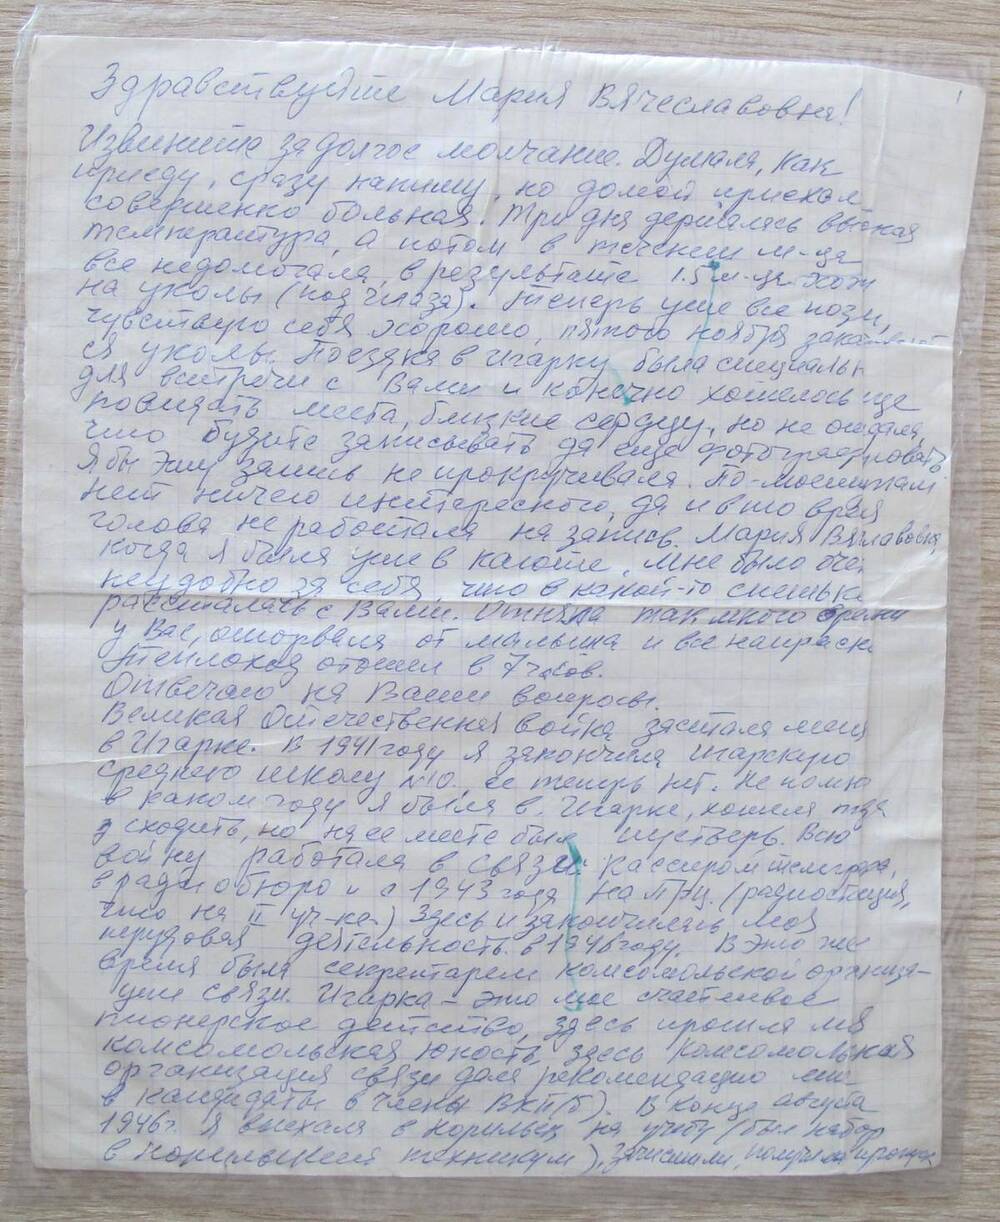 1
Здравствуйте Мария Вячеславовна!
Извините за долгое молчание. Думала, как
приеду, сразу напишу, но домой приехала
совершенно больная. Три дня держалась высокая
температура, а потом в течении м-ца
все недомогала, в результате 1.5 м-ца хожу
на уколы (под глаза). Теперь уже все позади,
чувствую себя хорошо, пятого ноября заканчивают
ся уколы. Поездка в Игарку была специально
для встречи с Вами и конечно хотелось еще
повидать места, близкие сердцу, но не ожидала,
что будете записывать да еще фотографировать
Я бы эту запись не прокручивала. По-моему там
нет ничего интересного, да и в то время
голова не работала на запись. Мария Вячславовна,
когда я была уже в каюте, мне было очень
неудобно за себя, что в какой-то спешке
рассталась с Вами. Отняла так много время
у Вас, оторвала от малыша и все напрасно
Теплоход отошел в 7 часов.
Отвечаю на Ваши вопросы.
Великая Отечественная война застала меня
в Игарке. В 1941 году я закончила игарскую
среднюю школу №10, ее теперь нет. Не помню
в каком году я была в Игарке, хотела туда
сходить, но на ее месте был пустырь. Всю
войну работала в связи кассиром телеграфа,
в радиобюро и с 1943 года на ПРЦ. (радиостанция,
что на II уч-ке.) Здесь и закончилась моя
трудовая деятельность в 1946 году. В это же
время была секретарем комсомольской организа-
ции связи. Игарка – это мое счастливое
пионерское детство, здесь прошла моя
комсомольская юность, здесь комсомольская
организация связи дала рекомендацию мне
в кандидаты в члены ВКП(б). В конце августа
1946г. я выехала в Норильск на учебу (был набор
в Норильский техникум), зачислили, получила пропуск